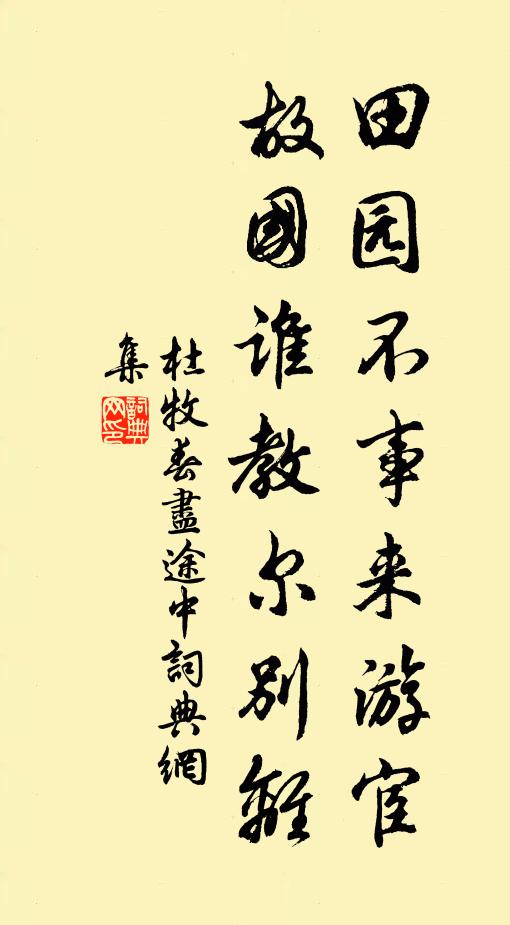 田园不事来游宦
故國谁教尔别離
杜牧春盡途中詞典網
集
詞典网印